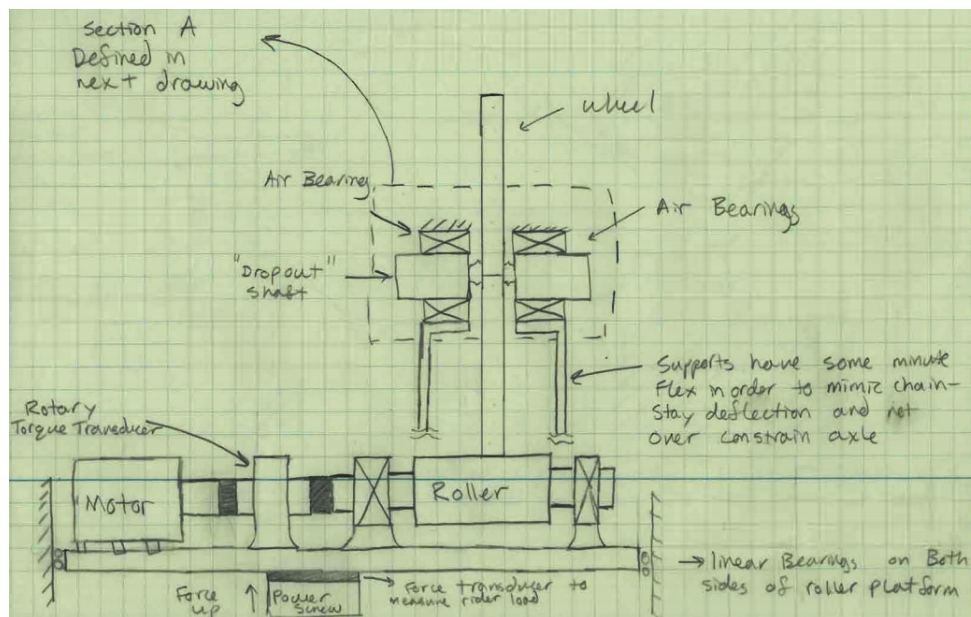 Section A
Defined in
next drawing
wheel
Air Bearing
Air Bearings
"Dropout"
shaft
Supports have some minute
Flex in order to mimic chain-
Stay deflection and not
over constrain axle
Rotary
Torque Transducer
Motor
Roller
→ linear Bearings on Both
sides of roller platform
Force
up
Power
Screw
Force transducer to
measure rider load